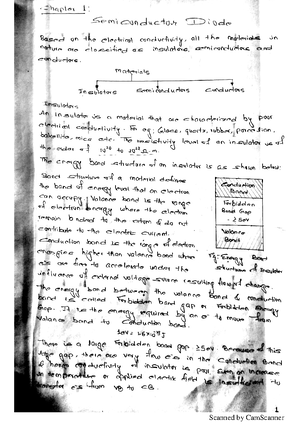 Chapter 1:
Semiconductor Diode
Based on the electrical conductivity, all the materials in
nature are classified as insulators, semiconductors and
conductors.
Materials
Insulators Semiconductors Conductors
Insulators
An insulator is a material that are characterised by poor
electrical conductivity. For eg: Glass, quartz, rubber,
bakelite, mica etc. The resistivity level of an insulator is of
the order of
The energy band structure of an insulator is as shown below:
Band structure of a material defines
the band of energy level that an electron
can occupy. Valance band is the range
of electron energy where the electron
remain bonded to the atom & do not
contribute to the electric current.
Conduction band is the range of electron
energies higher than valance band where
e's are free to accelerate under the
influence of external voltage source resulting flow of charge
The energy band between the valance band & conduction
band is called forbidden band gap or Forbidden energy
gap. It is the energy required by an e⁻ to move from
Valance band to Conduction band.
There is a large forbidden band gap ≥5ev. Because of this
large gap, there are very few e's in the Conduction Band
& hence conductivity of insulator is poor. Even an increase
in temperature or applied electric field is insufficient to
transfer e's from VB to CB.
Conduction
Band
Forbidden
Band Gap
≥ 5ev
Valance
Band
Fig: Energy band
structure of Insulator
1
Scanned by CamScanner